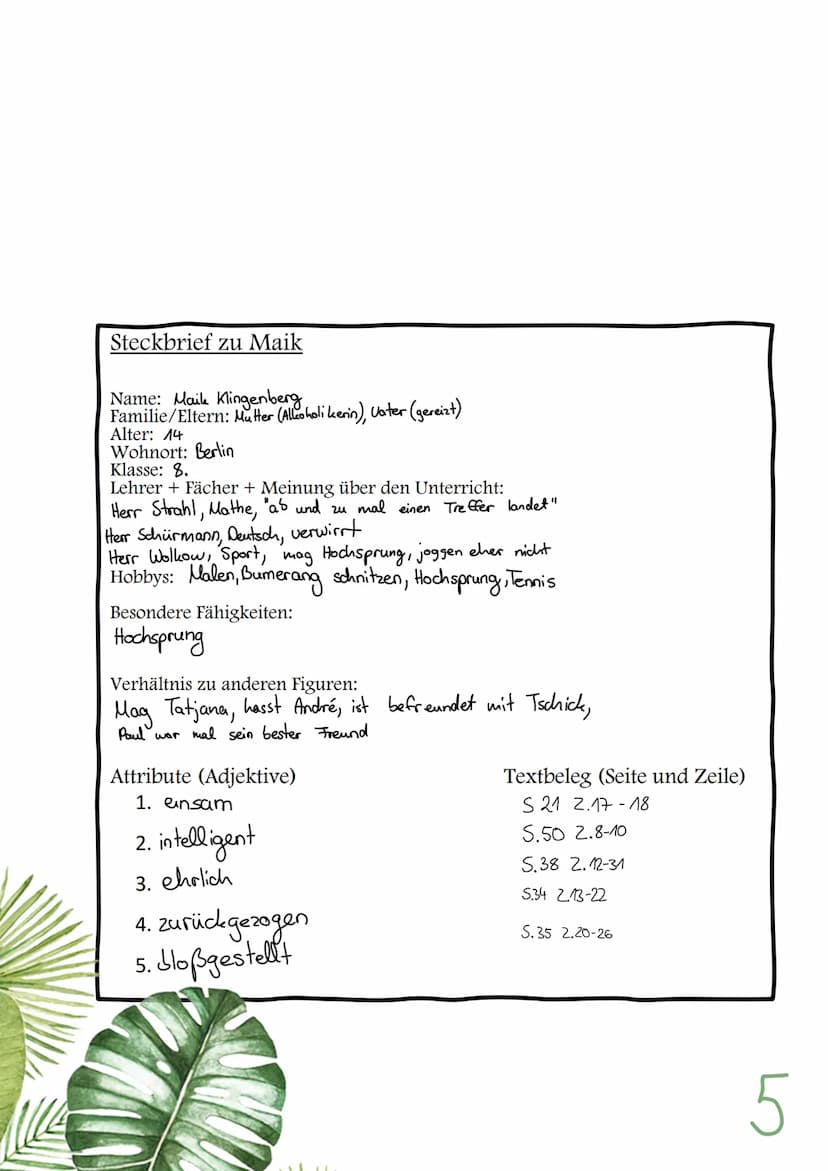 Steckbrief zu Maik
Name: Maik Klingenberg
Familie/Eltern: Mutter (Alkoholikerin), Vater (gereizt)
Alter: 14
Wohnort: Berlin
Klasse: 8.
Lehrer + Fächer + Meinung über den Unterricht:
Herr Strahl, Mathe, "ab und zu mal einen Treffer landet"
Herr Schürmann, Deutsch, verwirrt
Herr Wolkow, Sport, mag Hochsprung, joggen eher nicht
Hobbys: Malen, Bumerang schnitzen, Hochsprung, Tennis
Besondere Fähigkeiten:
Hochsprung
Verhältnis zu anderen Figuren:
Mag Tatjana, hasst André, ist befreundet mit Tschick,
Paul war mal sein bester Freund
Attribute (Adjektive) Textbeleg (Seite und Zeile)
1. einsam S 21 Z.17-18
2. intelligent S.50 Z.8-10
3. ehrlich S.38 Z.12-31
4. zurückgezogen S.34 Z.13-22
5. bloßgestellt S.35 Z.20-26
5